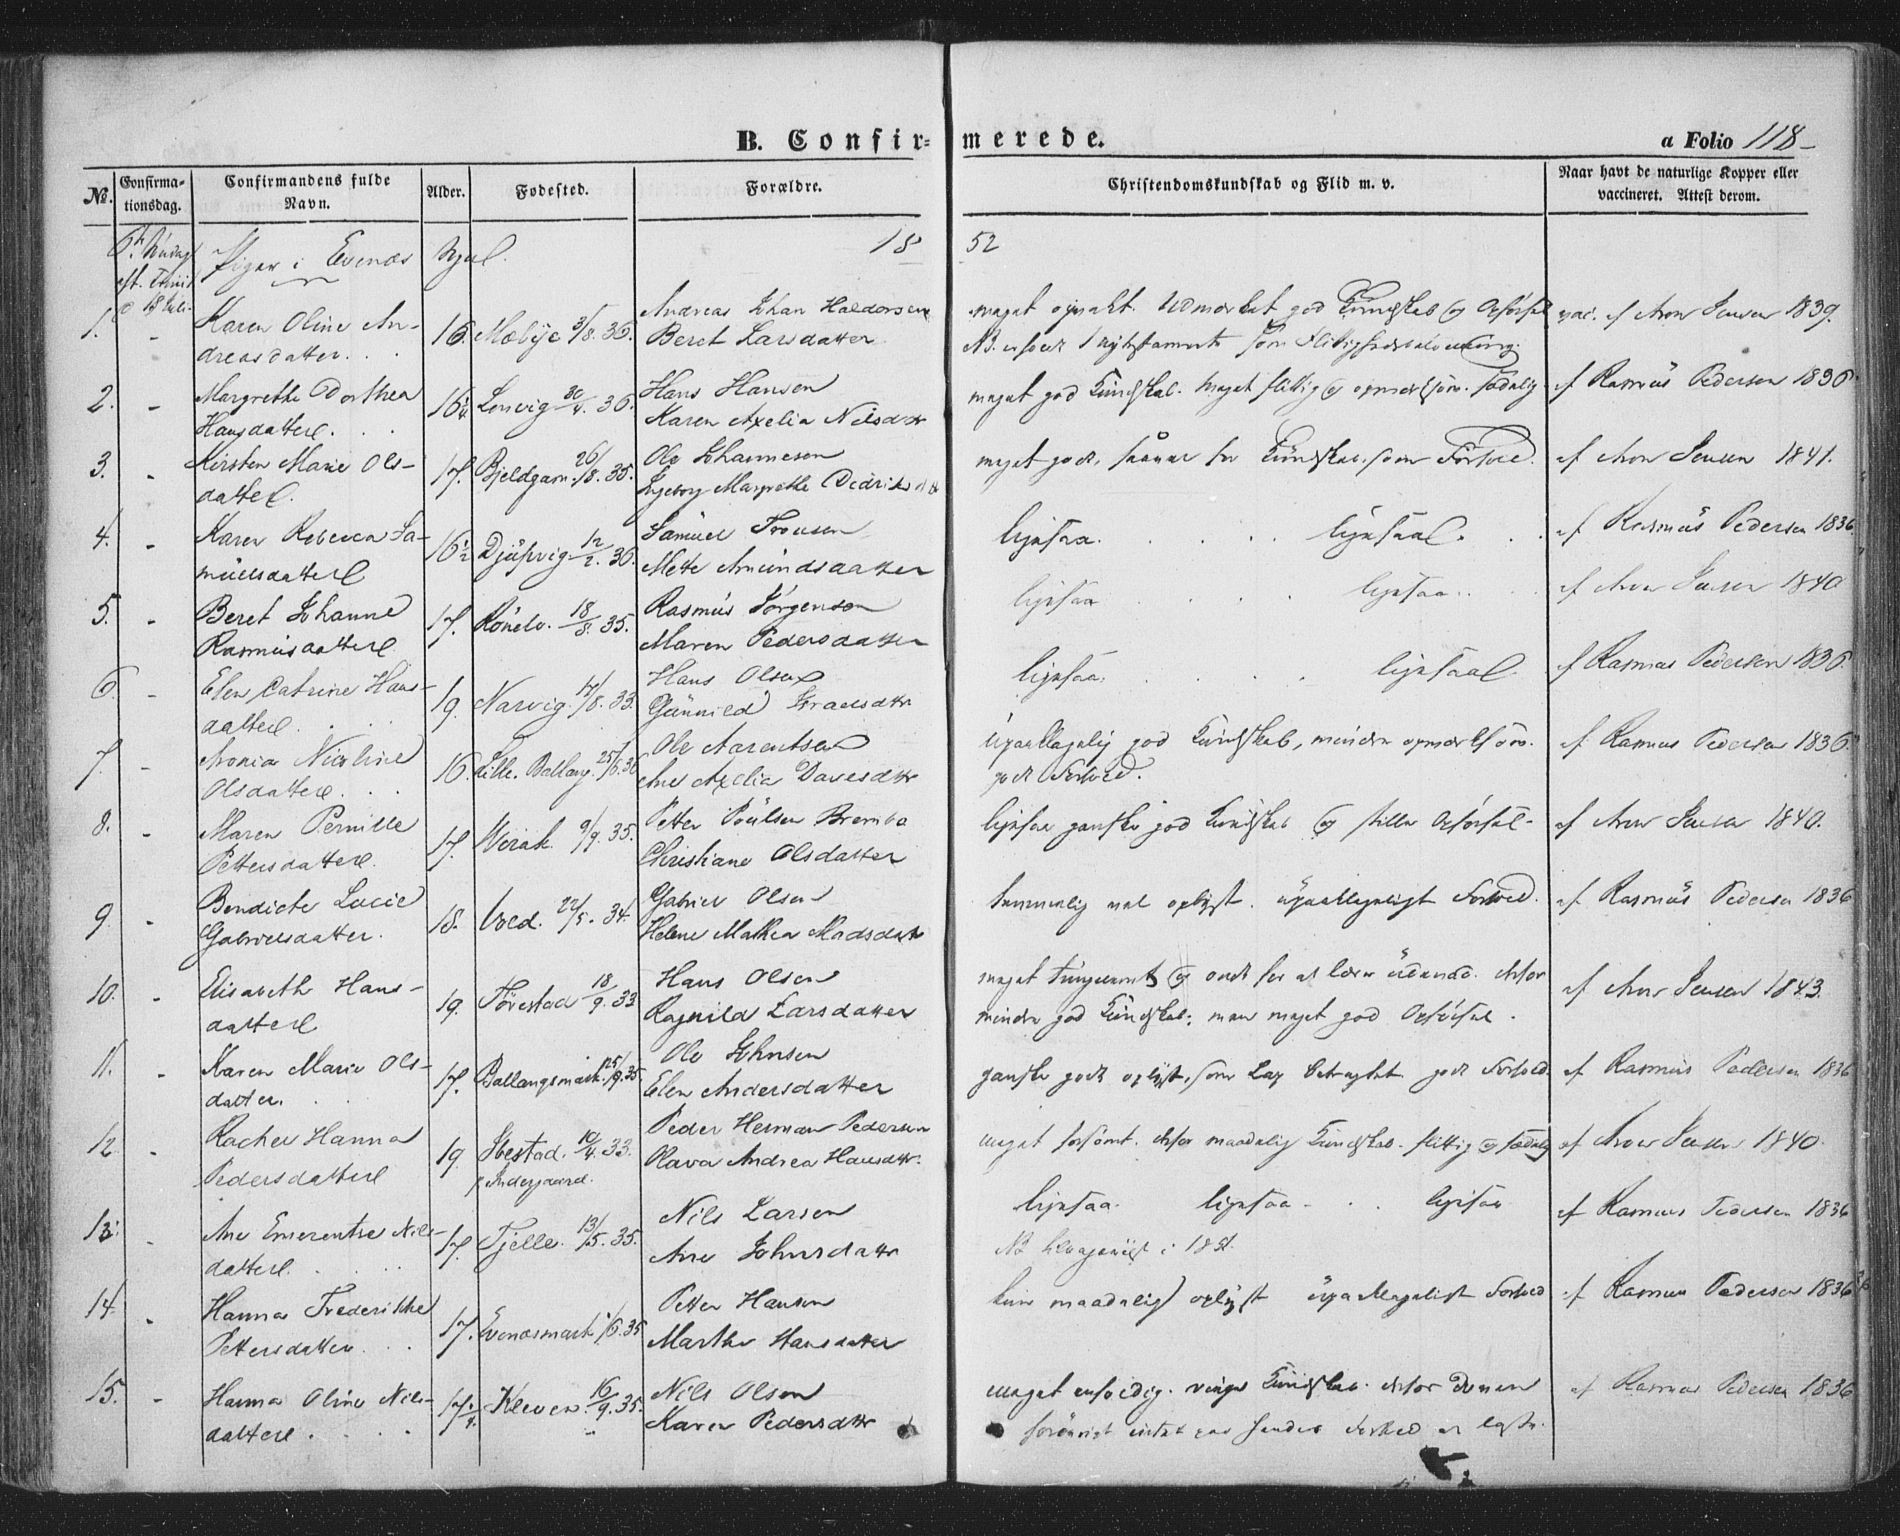 B. Confir= merede.
a Folio 118
No.
Confirma-
tionsdag.
Confirmandens fulde
Navn.
Alder.
Fødested.
Forældre.
Christendomskundskab og Flid m. v.
Naar havt de naturlige Kopper eller
vaccineret. Attest derom.
Piger i Evenæs 18 52
1. Karen Oline An-
dreasdatter. 16. 3/8. 36. Andreas Johan Haldorsen
Beret Larsdatter
meget opvakt. Udmærket god Kundskab og Opførsel
vac. af Aron Jensen 1839.
2. Margrethe Dorthea
Hansdatter. 16 1/4 Lenvig 30/4. 36. Hans Hansen
Karen Axelia Nilsdtr
meget god Kundskab. meget flittig og opmærksom. sædelig
af Rasmus Pedersen 1836.
3. Kirsten Marie Ols-
datter. 17. Bjeldgam. 26/8. 35. Ole Johannesen
Ingeborg Margrethe Didriksdtr
meget godt, saavel for Kundskab som Forhold.
af Aron Jensen 1841.
4. Karen Rebecca Sa-
muelsdatter 16 1/2 Djupvig 12/2. 36. Samuel Tronsen
Mette Amundsdatter
ligesaa. ligesaa.
af Rasmus Pedersen 1836.
5. Beret Johanne
Rasmusdatter 17. 18/8. 35. Rasmus Jørgensen
Maren Pedersdatter
ligesaa ligesaa.
af Aron Jensen 1840
6. Elen Catrine Hans-
datter. 19. Narvig. 17/8. 33. Hans Olsen
Gunnild Israelsdtr
ligesaa. ligesaa.
af Rasmus Pedersen 1836.
7. Aronia Nicoline
Olsdatter. 16. Lille Ballang. 25/6. 36 Ole Aarentsen
Ane Axelia Davesdtr
upaaklagelig god Kundskab, mindre opmærksom.
godt Forhold.
af Rasmus Pedersen 1836.
8. Maren Pernille
Pettersdatter. 17. Virak 9/9. 35. Petter Poulsen Brembo
Christiane Olsdatter
ligesaa ganske god Kundskab og stille Opførsel.
af Aron Jensen 1840.
9. Bendicte Lucie
Gabrielsdatter. 18. Vold. 22/5. 34. Gabriel Olsen
Helene Mathea Madsdatr
temmelig vel oplyst. upaaklageligt Forhold.
af Rasmus Pedersen 1836
10. Elisabeth Hans-
datter 19. Forestad 18/9. 33 Hans Olsen
Ragnild Larsdatter
meget tungnemt og ondt for at lære udenad. derfor
mindre god Kundskab; men meget god Opførsel.
af Aron Jensen 1843.
11. Karen Marie Ols-
datter. 17. Ballangsmark. 25/9. 35 Ole Johnsen
Elen Andersdatter
ganske godt oplyst, som Lap betragtet. godt Forhold.
af Rasmus Pedersen 1836
12. Rachel Hanna
Pedersdatter 19. Ibestad. 10/4. 33. Peder Herman Pedersen
Olava Andrea Hansdtr.
meget forsømt. derfor maadelig Kundskab. flittig og sædelig
af Aron Jensen 1840.
13. Ane Emerentse Nils-
datter. 17. Tjelle. 13/5. 35. Nils Larsen
Ane Johnsdatr
ligesaa. ligesaa. ligesaa
i 1851.
af Rasmus Pedersen 1836
14. Hanna Frederikke
Pettersdatter. 17. Evenæsmark 1/6. 35 Petter Hansen
Marthe Hansdatter
kun maadeligt oplyst upaaklageligt Forhold
af Rasmus Pedersen 1836
15. Hanna Oline Nils-
datter. 17 Kleven. 16/9. 35. Nils Olsen
Karen Pedersdtr
meget enfoldig. ringe Kundskab.
af Rasmus Pedersen 1836